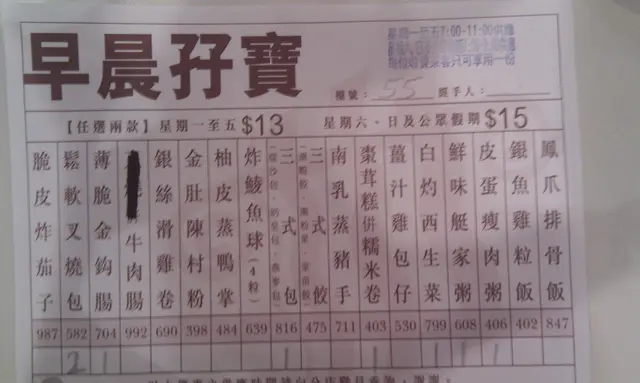 早晨孖寶
星期一至五7:00-11:00供應
檯號: 55 經手人:
【任選兩款】星期一至五$13 星期六、日及公眾假期$15
鳳爪排骨飯 847
銀魚雞粒飯 402
皮蛋瘦肉粥 406
鮮味艇家粥 608
白灼西生菜 799
薑汁雞包仔 530
棗茸糕併糯米卷 403
南乳蒸豬手 711
三式餃 475
三式包 816
炸鯪魚球(4粒) 639
柚皮蒸鴨掌 484
金肚陳村粉 398
銀絲滑雞卷 690
牛肉腸 992
薄脆金鈎腸 704
鬆軟叉燒包 582
脆皮炸茄子 987
2 1 1 1 1 1 1